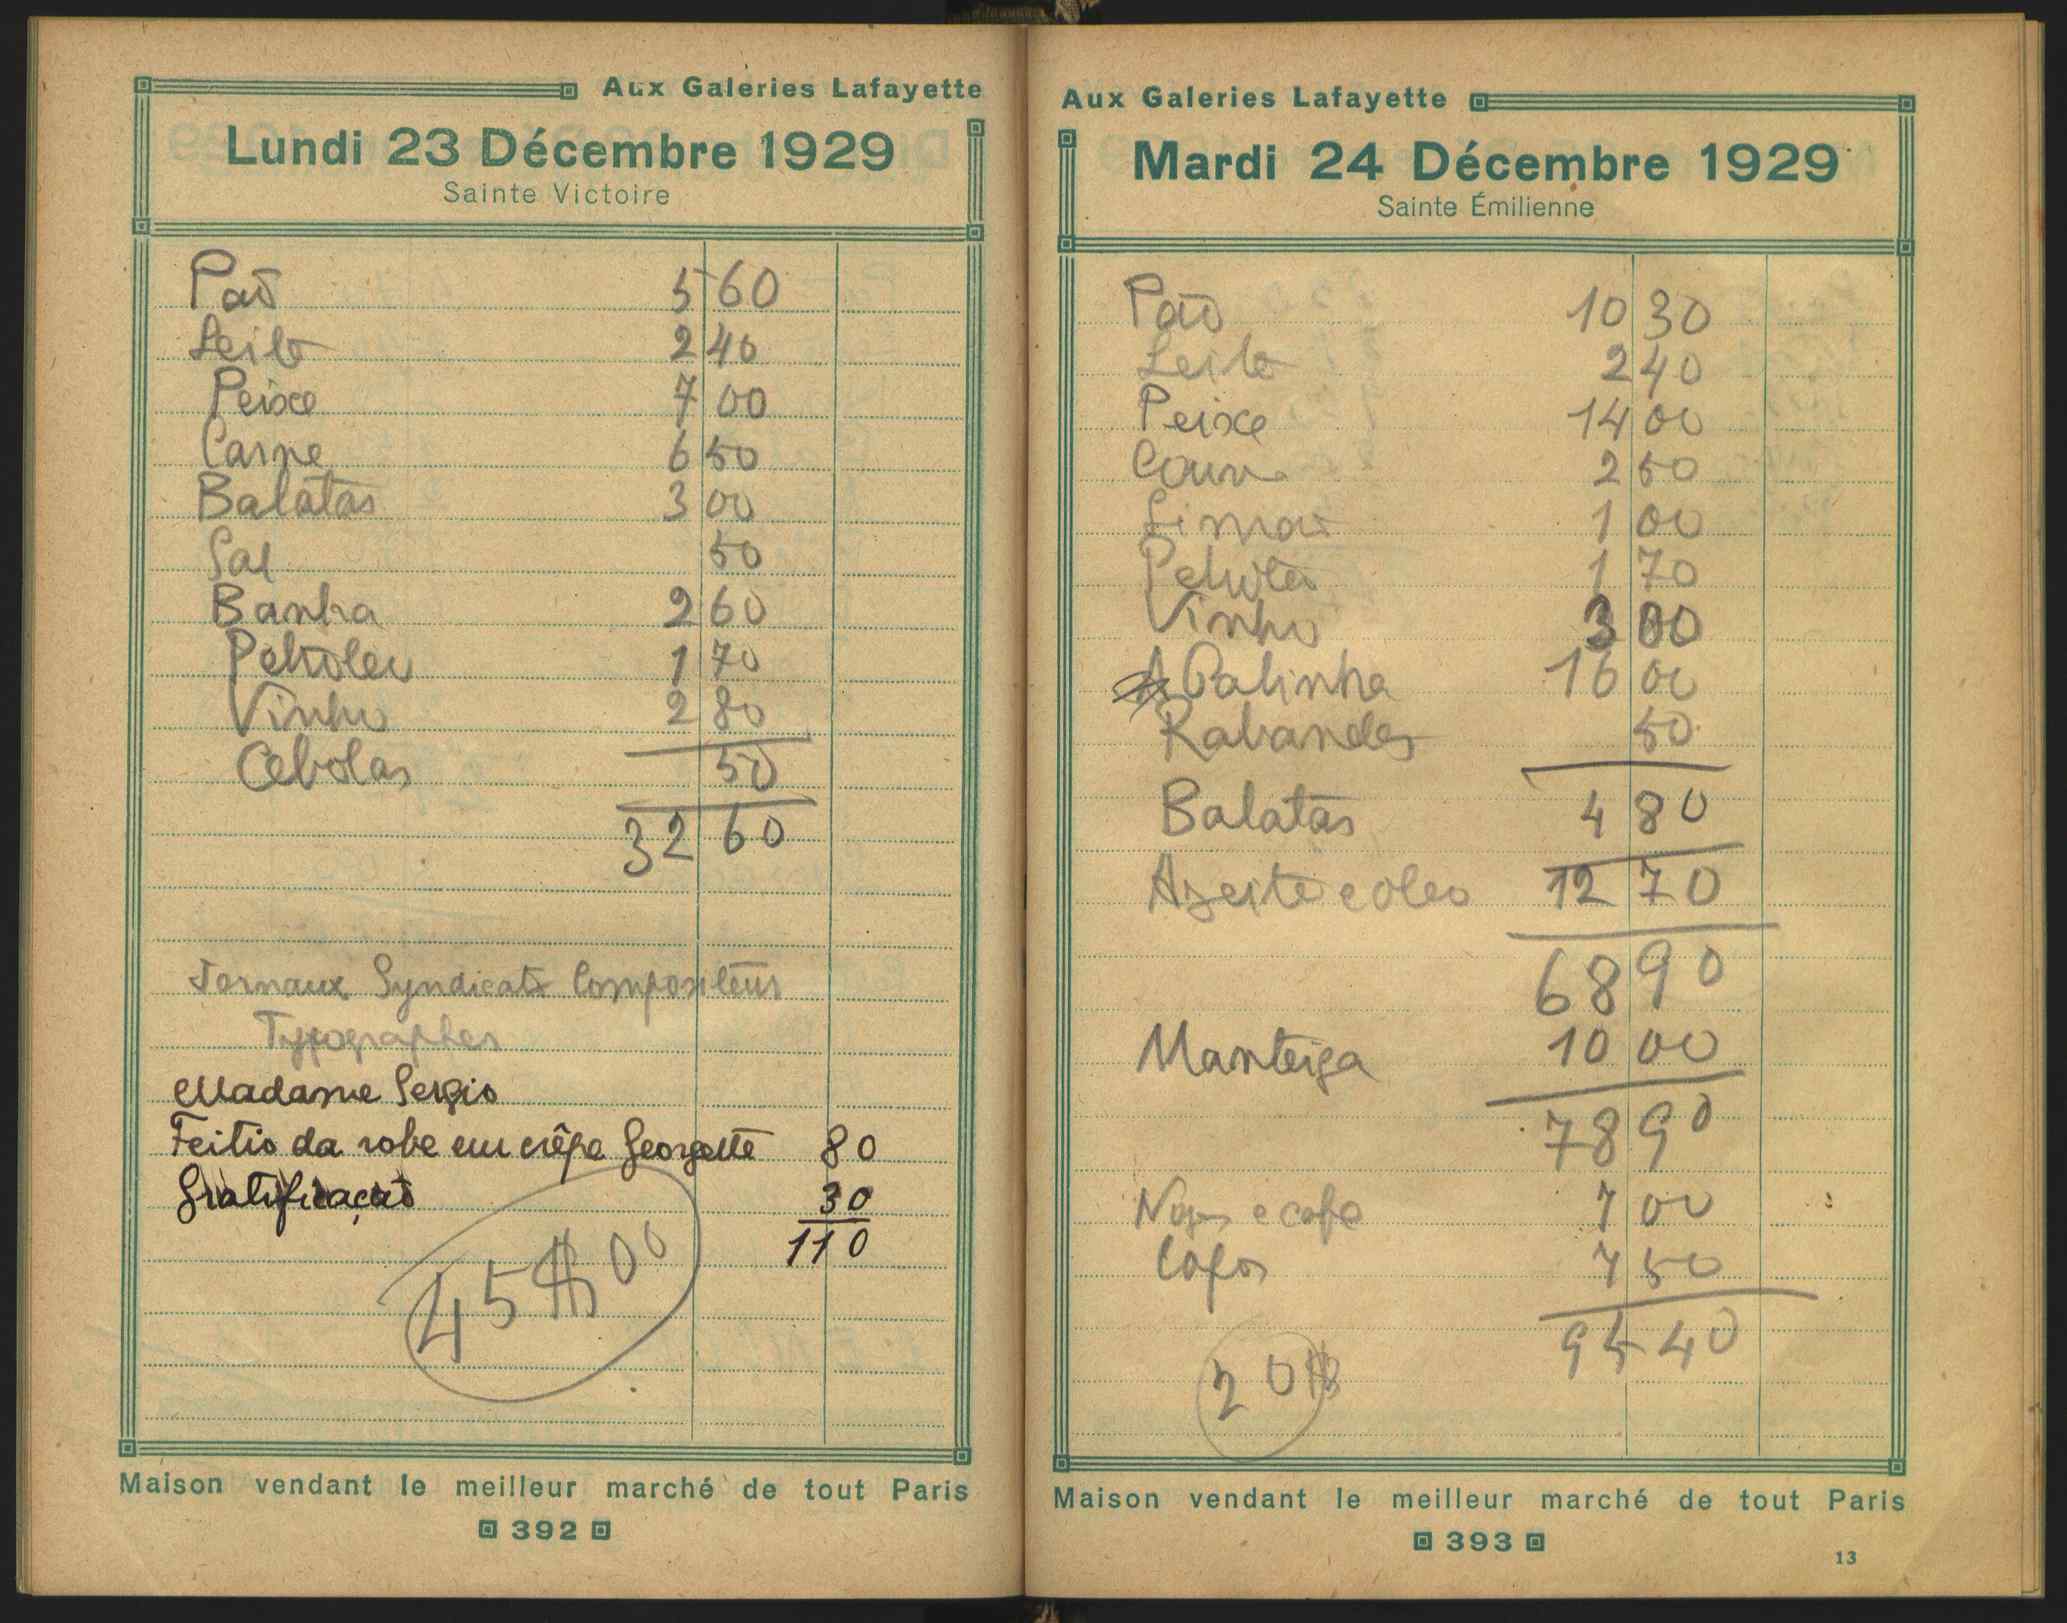 Aux Galeries Lafayette
Lundi 23 Décembre 1929
Sainte Victoire
Paõ 5 60
Leite 2 40
Peixe 7 00
Carne 6 50
Batatas 3 00
Sal 50
Banha 2 60
Petroleo 1 70
Vinho 2 80
Cebolas 50
32 60
Jornaux Syndicats Compositeurs
Typographes
Madame Sergio
Feitio da robe em crêpe Georgette 80
Gratificaçaõ 30
110
45$00
Maison vendant le meilleur marché de tout Paris
392
Aux Galeries Lafayette
Mardi 24 Décembre 1929
Sainte Émilienne
Paõ 10 30
Leite 2 40
Peixe 14 00
Couve 2 50
Limaõ 1 00
Petroleo 1 70
Vinho 3 00
A Galinha 16 00
Rabanetes 50
Batatas 4 80
Azeite e oleo 12 70
68 90
Manteiga 10 00
78 90
e cafe 7 00
Copos 7 50
95 40
20$
Maison vendant le meilleur marché de tout Paris
393
13